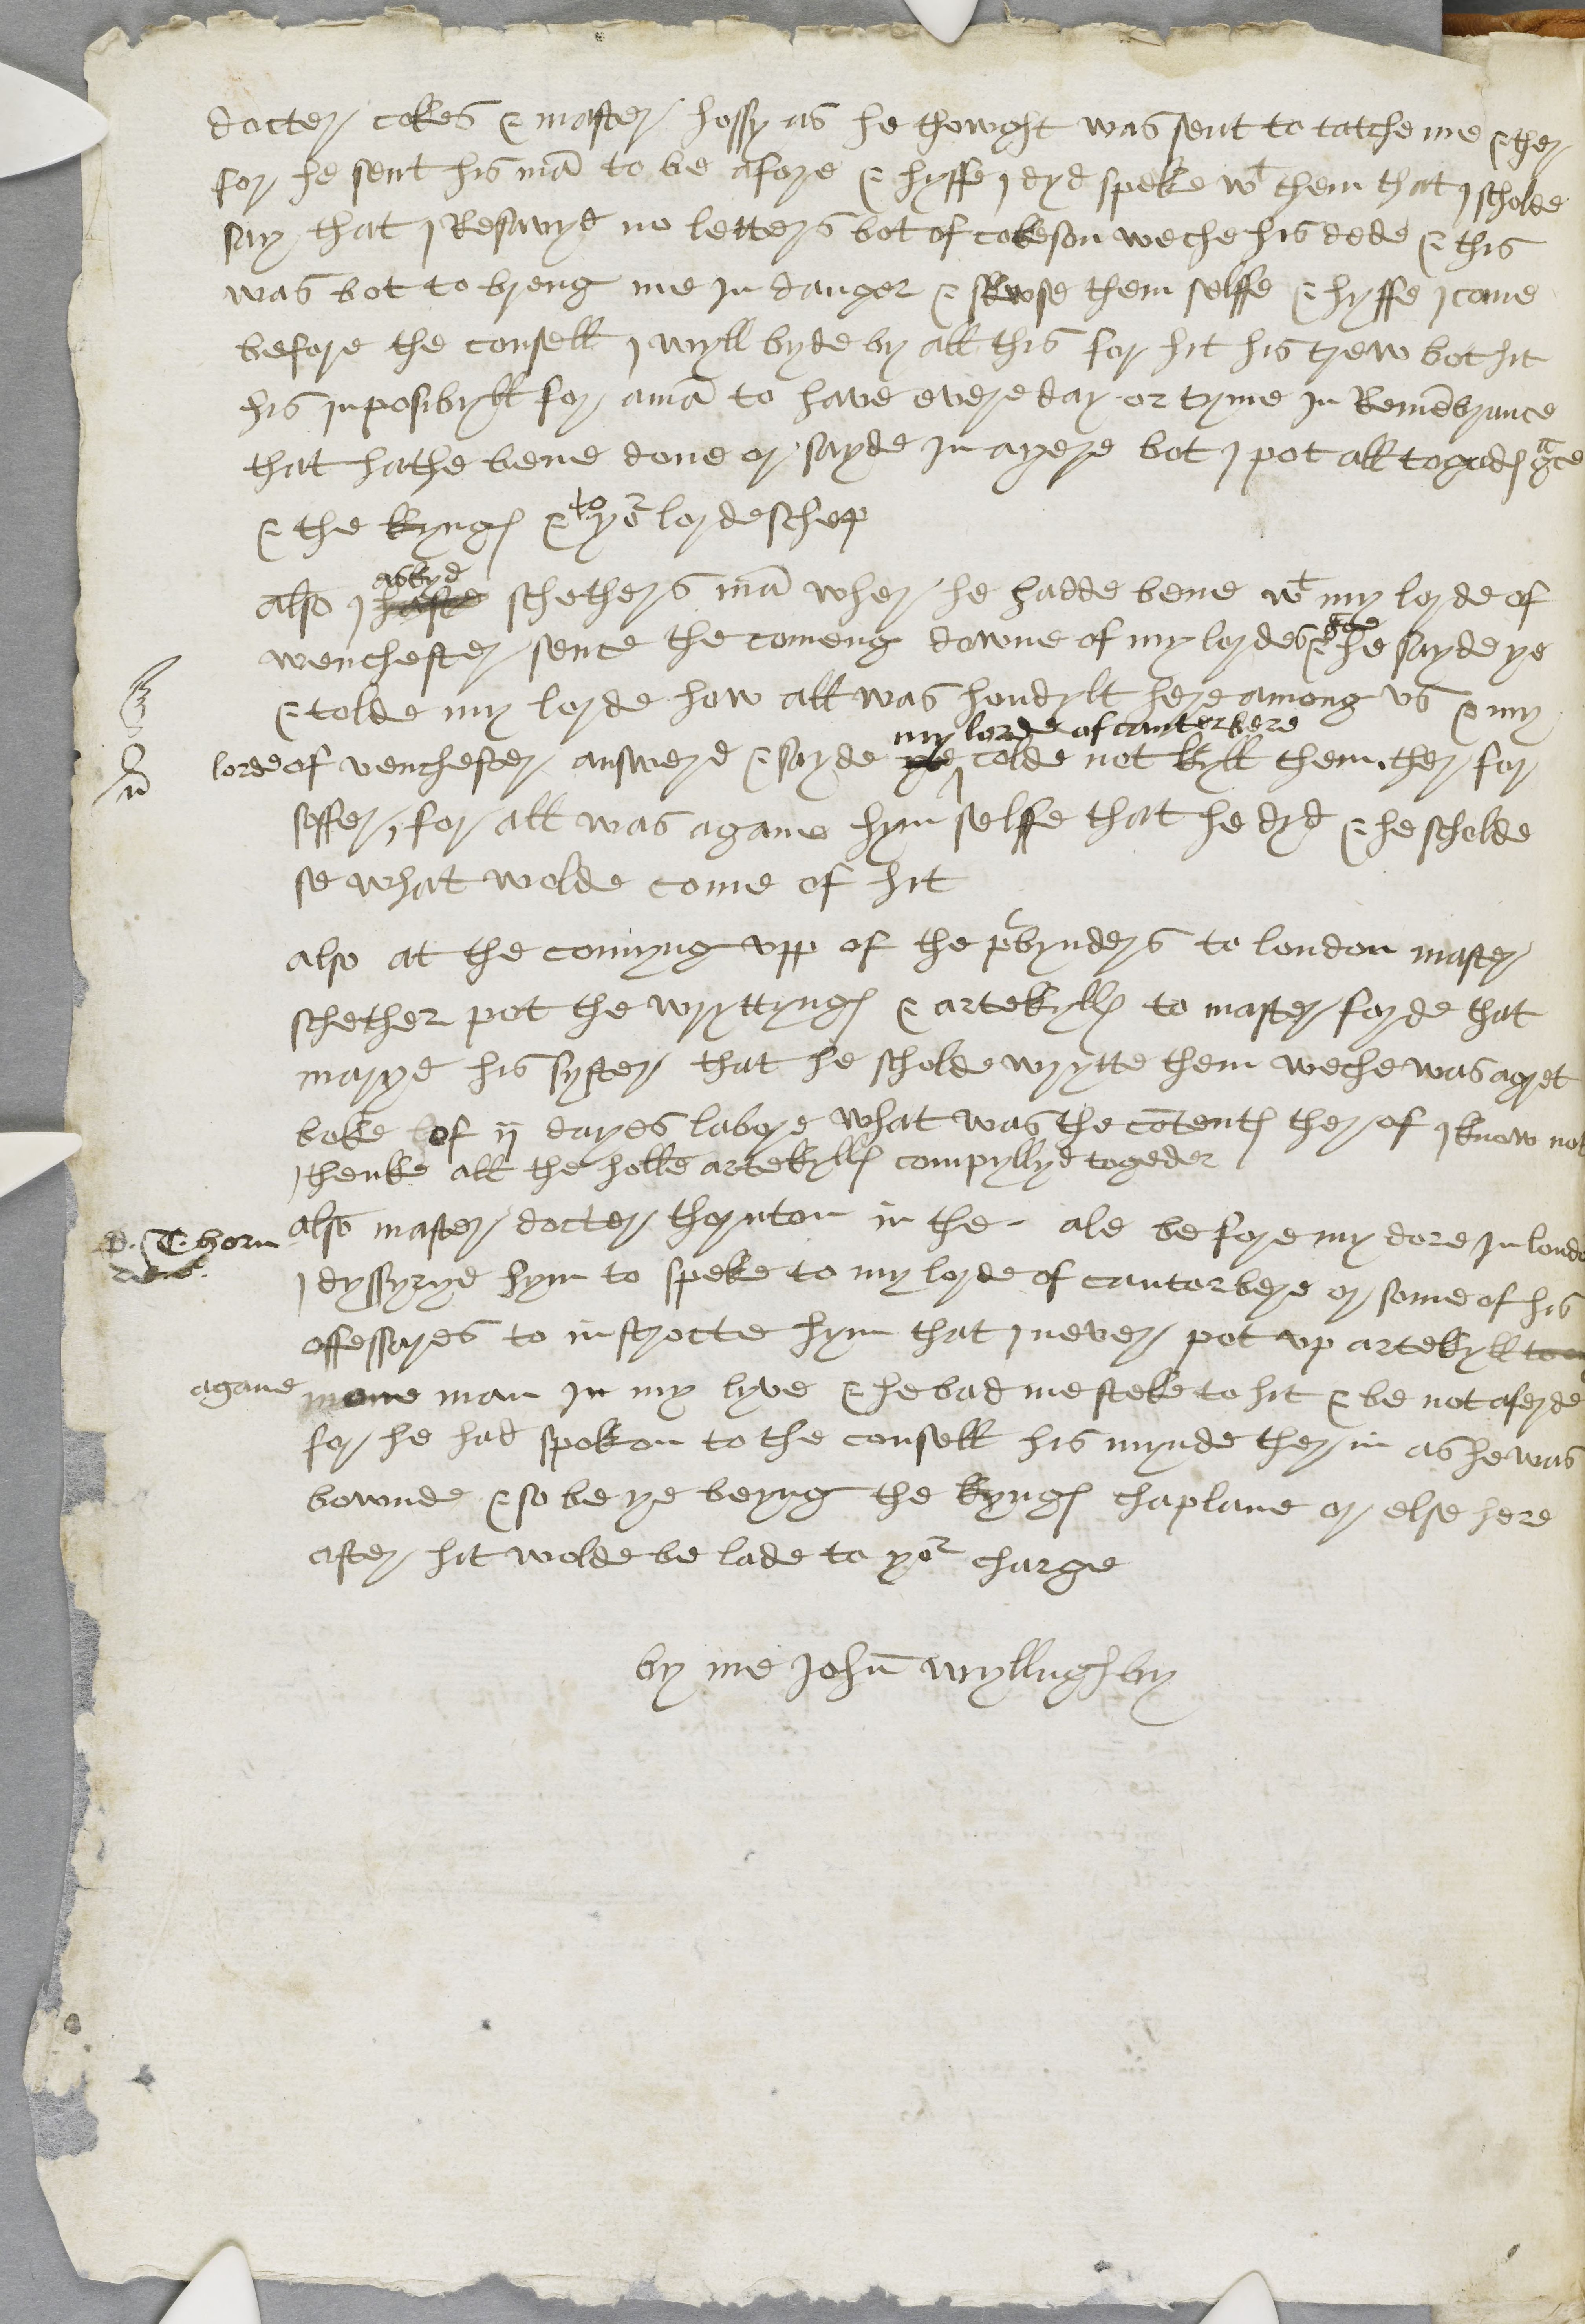 docter cokes & master hussy as he thowght was sent to tatche me & ther
for he sent his mā to be afore & hyffe I dyd speke wt them that I scholde
say that I Resavyd no letters bot of cokeson weche his dede & this
was bot to breng me in danger & skwse them selffe & hyffe I come
before the consell I wyll byde by all this for hit his trew bot hit
his inposibyll for a mā to have evere day or tyme in Remēbrance
that hathe bene done or sayde in a yere bot I pot all to godes gace
& the kynges & to yor lordeschep
also I askyd schethers mā wher he hadde bene wt my lorde of
wenchester sence the comeng downe of my lordes gce & he sayde ye
& tolde my lorde how all was hondylt here among vs & my
lorde of venchester answerd & sayde my lorde of canterbere colde not kyll them ther for
soffer, for all was agane hym selffe that he dyd & he scholde
se what wolde come of hit
also at the comyng vpp of the prbynders to london master
schether pot the wryttynges & artekylles to master forde that
maryd his syster that he scholde wrytte them weche was a gret
boke of ij dayes labore what was the cōtentes ther of I know not
I thenke all the holle artekylles compyllyd togeder
D. Thorn
dene.
also master docter thornton in the ale before my dore in londo
I dyssyryd hym to speke to my lorde of canterbere or some of his
offessares to instrocte hym that I never pot vp artekyll
agane none man in my lyve & he bad me steke to hit & be not aferde
for he had spoken to the consell his mynde ther in as he was
bownde & so be ye beyng the kynges chaplane or else here
after hit wolde be lade to yor charge
by me Johñ wyllughby